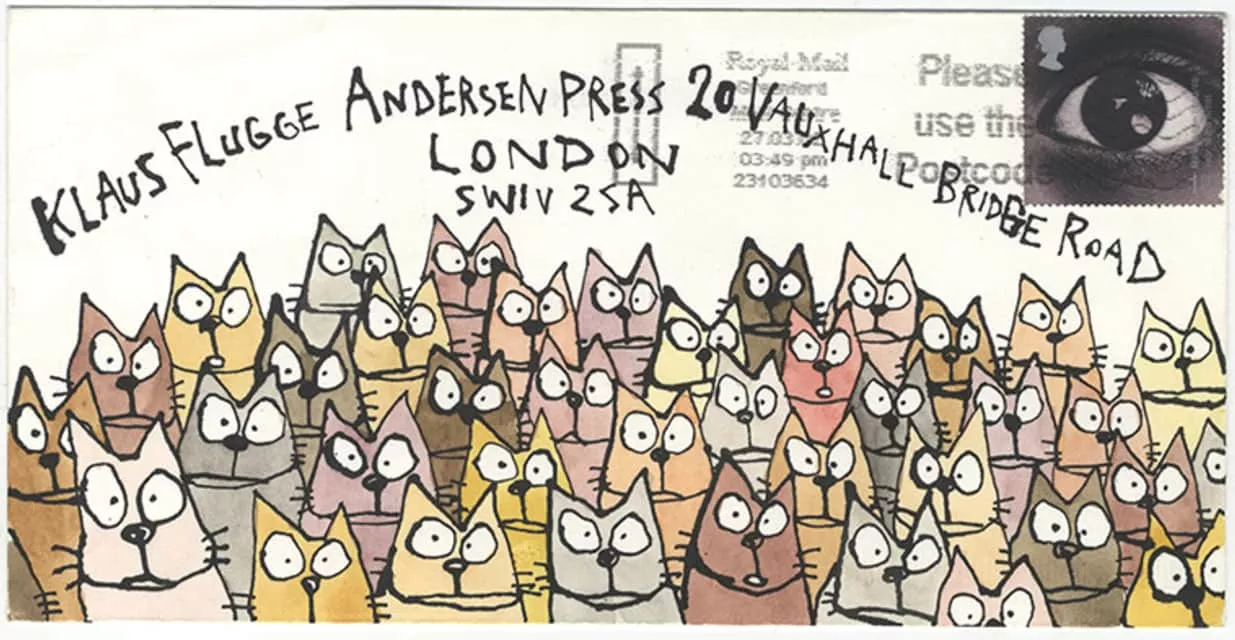 KLAUS FLUGGE ANDERSEN PRESS 20 VAUXHALL BRIDGE ROAD
LONDON
SW1V 2SA
Royal Mail
Greenford
03:49 pm
23103634
Please
use the
Postcode